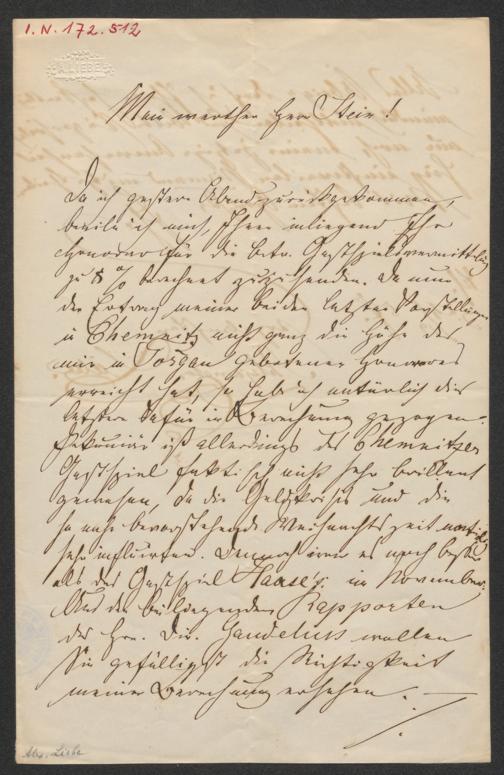 I. N. 172.512
A. LIEBE
Mein werther Herr Stein!
Da ich gestern Abend zurückgekommen,
beeile ich mich, Ihnen inliegend Ihr
Honorar für die betr. Gastspielvermittelung
zu 5 % berechnet zuzusenden. Da nun
der Ertrag meiner beiden letzten Vorstellungen
in Chemnitz nicht ganz die Höhe des
mir in Torgau gebotenen Honorares
erreicht hat, so habe ich natürlich die
letztere dafür in Berechnung gezogen.
Pekuniär ist allerdings das Chemnitzer
Gastspiel faktisch nicht sehr brillant
gewesen, da die Geldkrisis und die
so nahe bevorstehende Weihnachtszeit
sehr influirten. Dennoch war es noch besser
als das Gastspiel Haase's im November.
Aus den beiliegenden Rapporten
des Hrn. Dir. Gaudelius wollen
Sie gefälligst die Richtigkeit
meiner Berechnung ersehen. —
Alex. Liebe